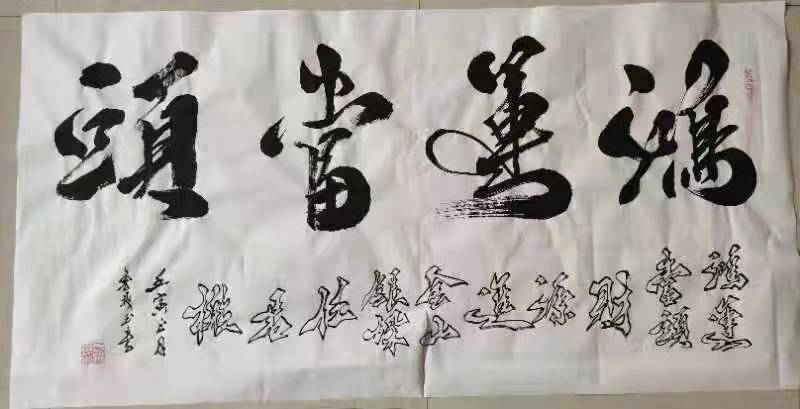 鴻運當頭
鴻運
當頭
財
源
進
金山
銀
任
君
挑
壬寅正月